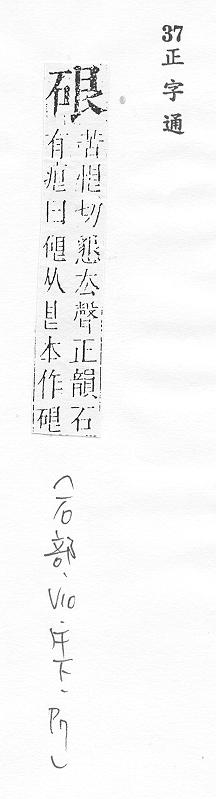 37正字通
硍
苦恨切懇去聲正韻石
有痕曰硍从艮本作硍
(石部、V10、午下、